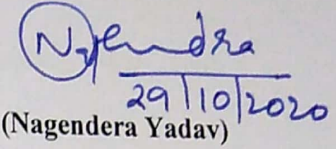 Nagendra
29/10/2020
(Nagendera Yadav)